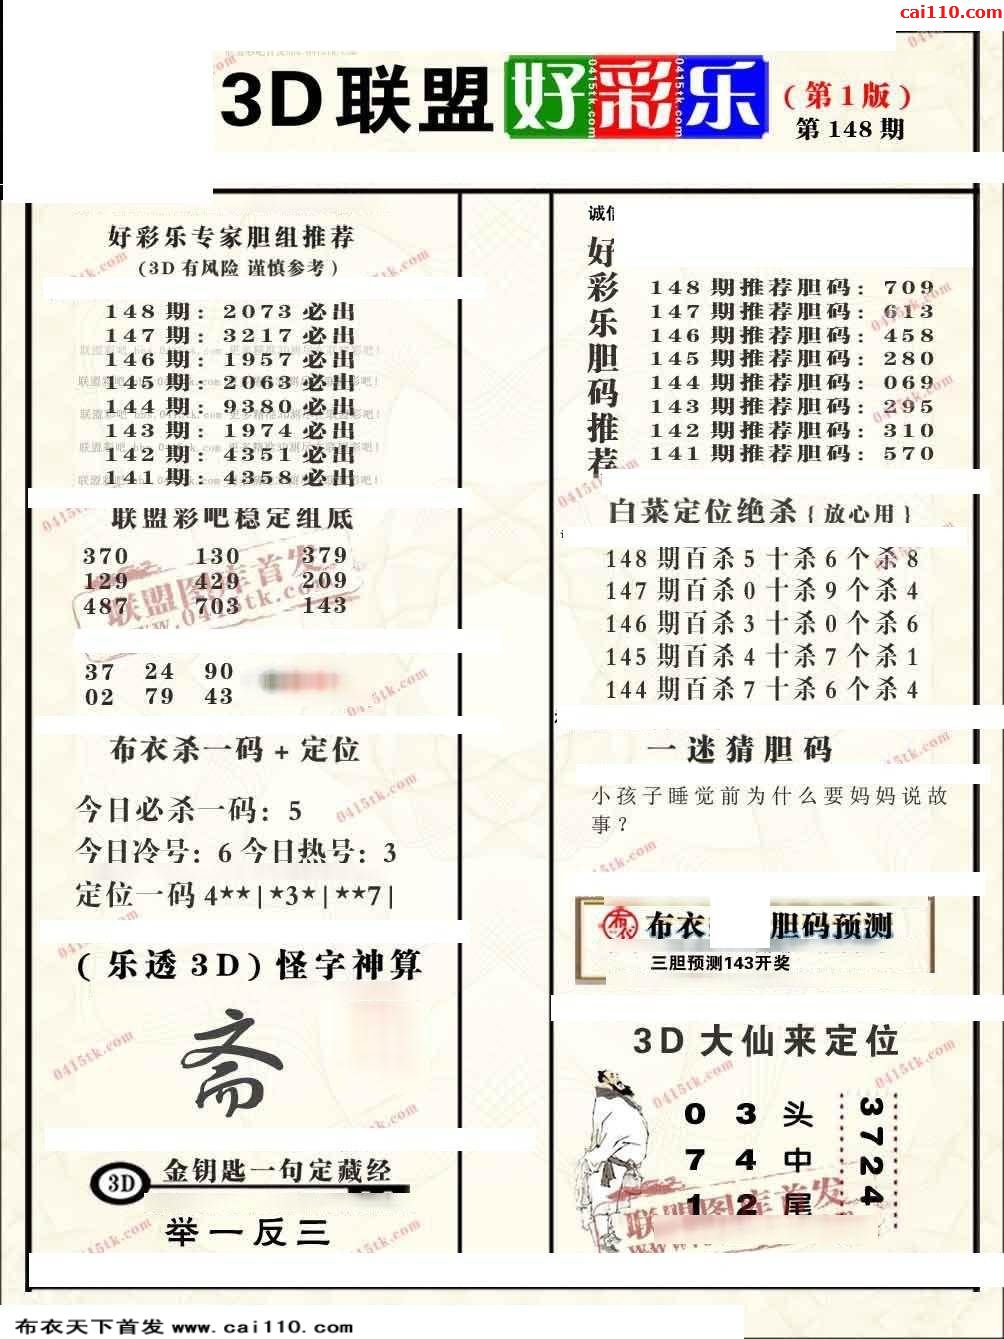 cai110.com
3D联盟好彩乐
(第1版)
第148期
好彩乐专家胆组推荐
(3D有风险 谨慎参考)
148期：2073必出
147期：3217必出
146期：1957必出
145期：2063必出
144期：9380必出
143期：1974必出
142期：4351必出
141期：4358必出
联盟彩吧稳定组底
370 130 379
129 429 209
487 703 143
37 24 90
02 79 43
布衣杀一码+定位
今日必杀一码：5
今日冷号：6 今日热号：3
定位一码4**|*3*|**7|
(乐透3D)怪字神算
斋
3D 金钥匙一句定藏经
举一反三
诚信
好彩乐胆码推荐
148期推荐胆码：709
147期推荐胆码：613
146期推荐胆码：458
145期推荐胆码：280
144期推荐胆码：069
143期推荐胆码：295
142期推荐胆码：310
141期推荐胆码：570
白菜定位绝杀{放心用}
148期百杀5十杀6个杀8
147期百杀0十杀9个杀4
146期百杀3十杀0个杀6
145期百杀4十杀7个杀1
144期百杀7十杀6个杀4
一迷猜胆码
小孩子睡觉前为什么要妈妈说故
事？
布衣 胆码预测
三胆预测143开奖
3D大仙来定位
0 3头
7 4中
1 2尾
3724
联盟图库首发
0415tk.com
布衣天下首发www.cai110.com